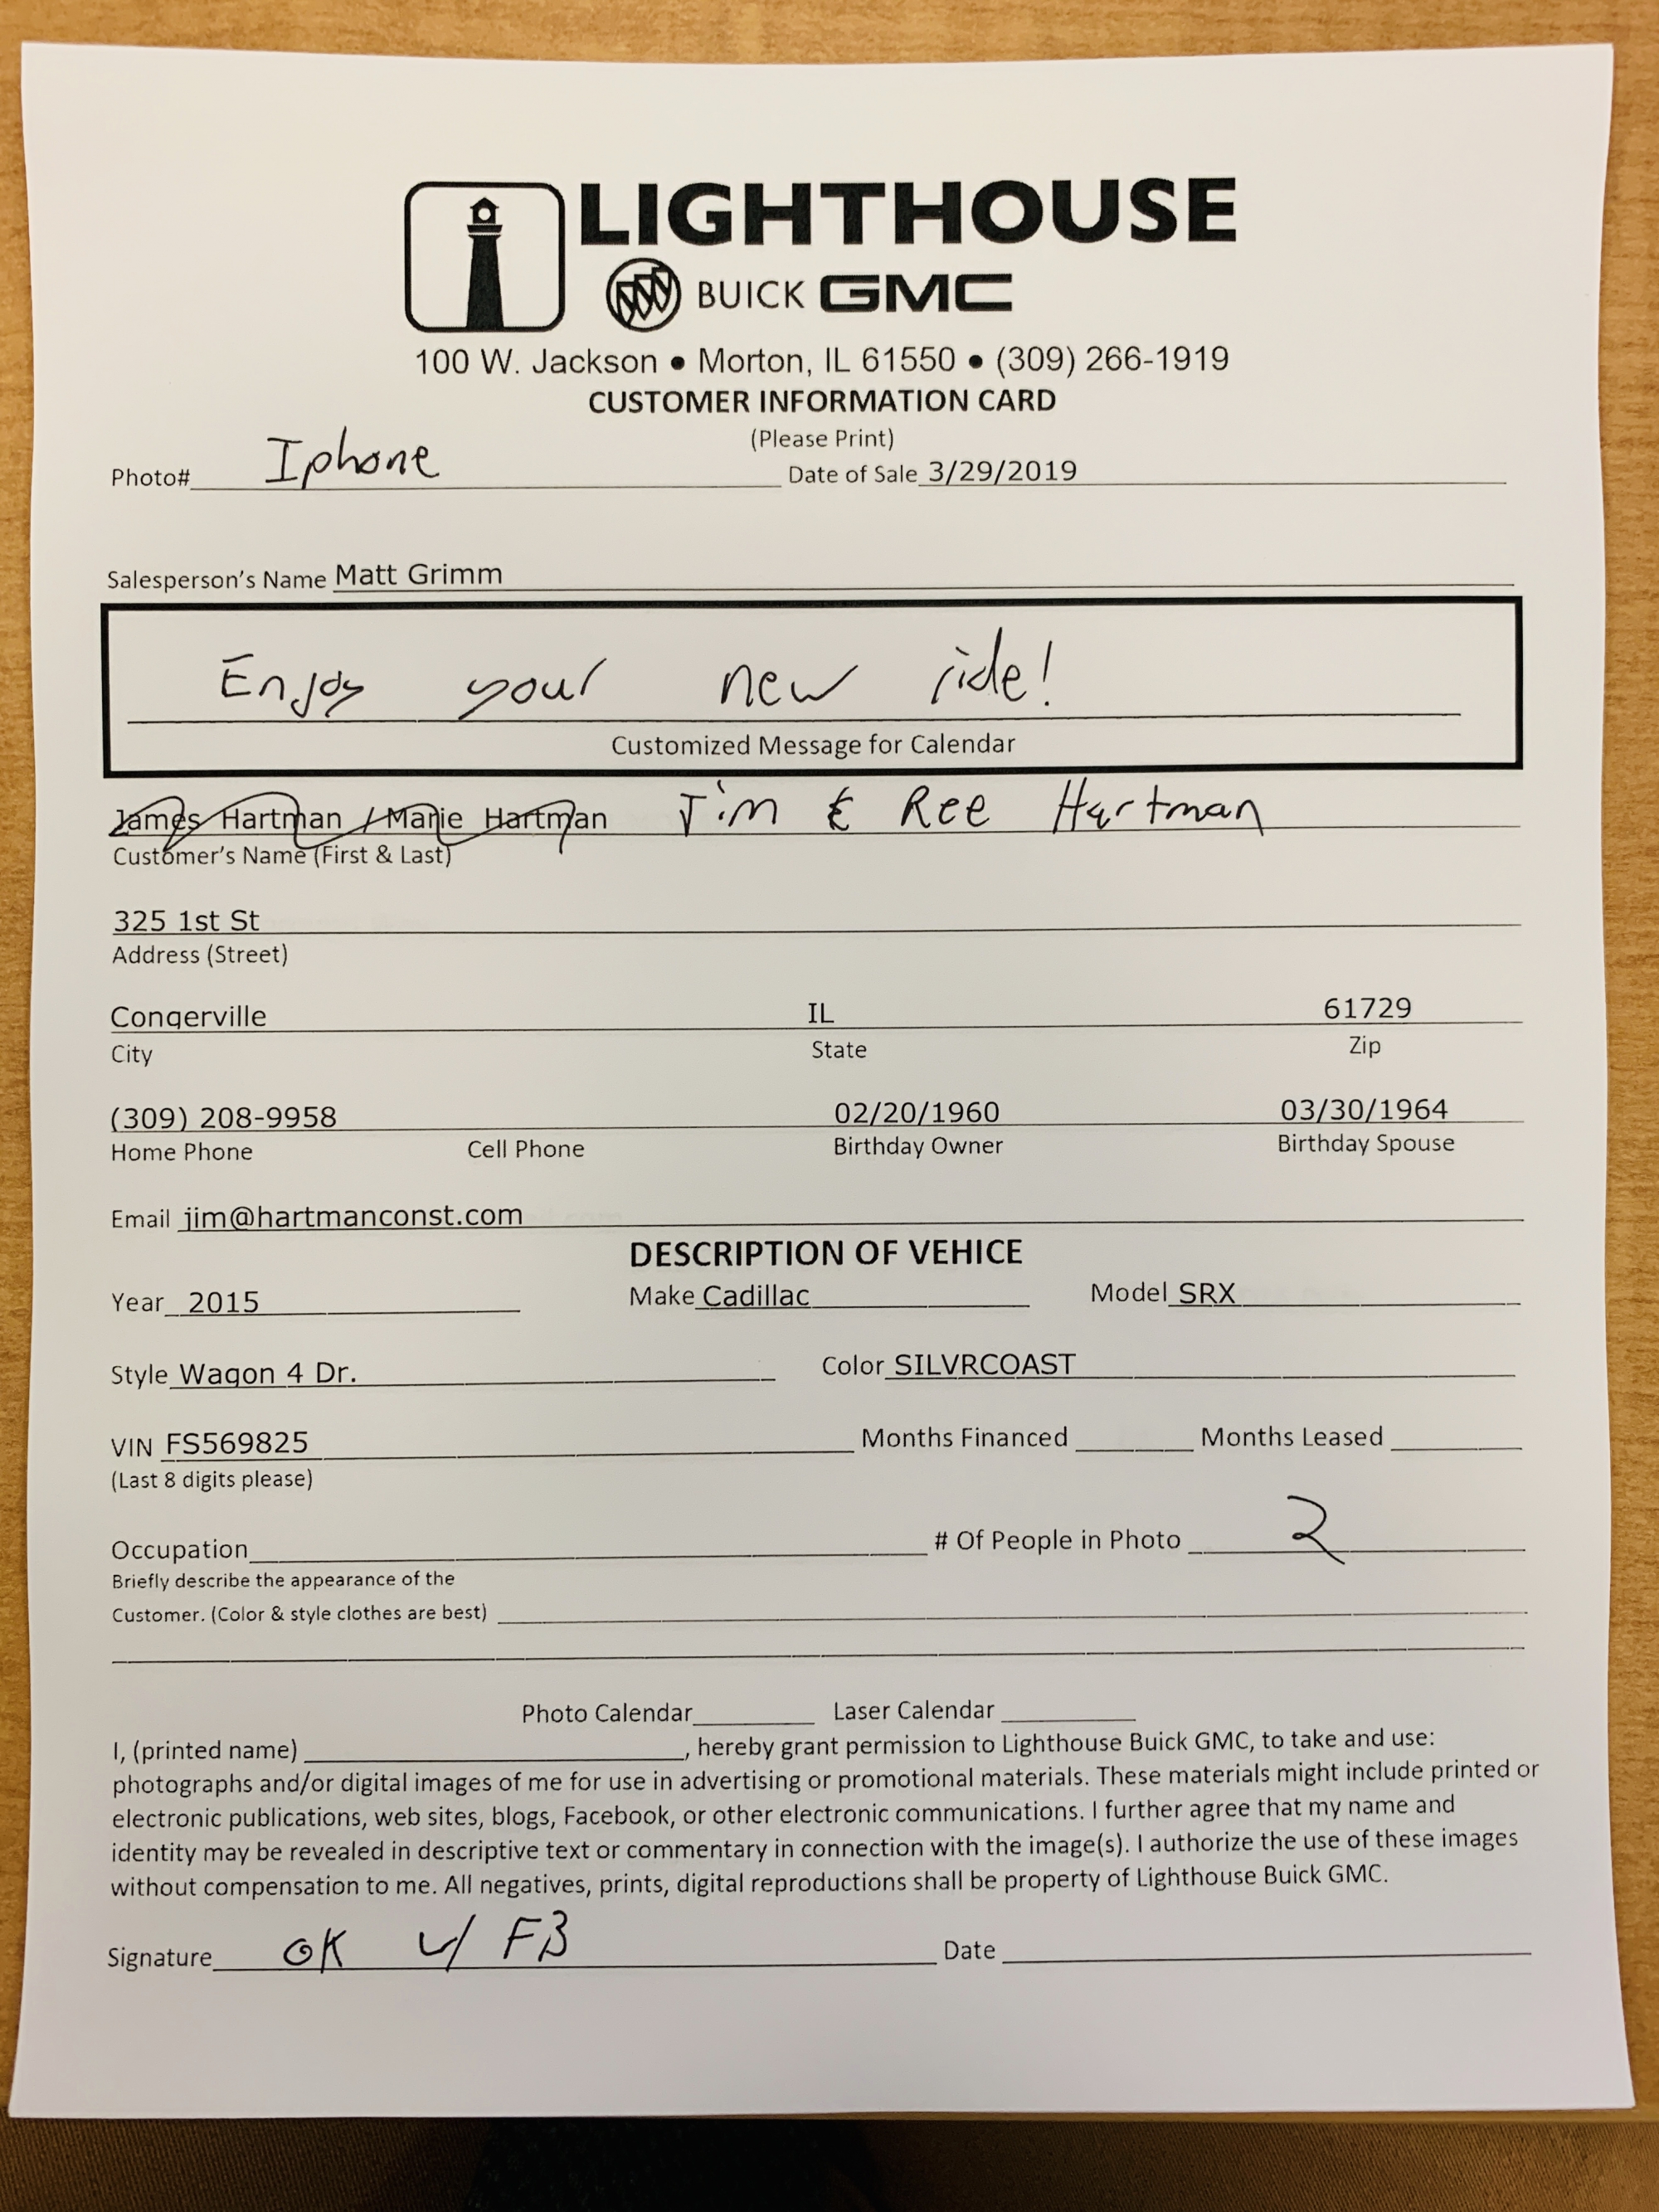 LIGHTHOUSE
BUICK GMC
100 W. Jackson • Morton, IL 61550 • (309) 266-1919
CUSTOMER INFORMATION CARD
(Please Print)
Photo# Iphone Date of Sale 3/29/2019
Salesperson's Name Matt Grimm
Enjoy your new ride!
Customized Message for Calendar
James Hartman / Marie Hartman Jim & Ree Hartman
Customer's Name (First & Last)
325 1st St
Address (Street)
Congerville IL 61729
City State Zip
(309) 208-9958 02/20/1960 03/30/1964
Home Phone Cell Phone Birthday Owner Birthday Spouse
Email jim@hartmanconst.com
DESCRIPTION OF VEHICE
Year 2015 Make Cadillac Model SRX
Style Wagon 4 Dr. Color SILVRCOAST
VIN FS569825 Months Financed Months Leased
(Last 8 digits please)
Occupation # Of People in Photo 2
Briefly describe the appearance of the
Customer. (Color & style clothes are best)
Photo Calendar Laser Calendar
I, (printed name) , hereby grant permission to Lighthouse Buick GMC, to take and use:
photographs and/or digital images of me for use in advertising or promotional materials. These materials might include printed or
electronic publications, web sites, blogs, Facebook, or other electronic communications. I further agree that my name and
identity may be revealed in descriptive text or commentary in connection with the image(s). I authorize the use of these images
without compensation to me. All negatives, prints, digital reproductions shall be property of Lighthouse Buick GMC.
Signature OK w/ FB Date